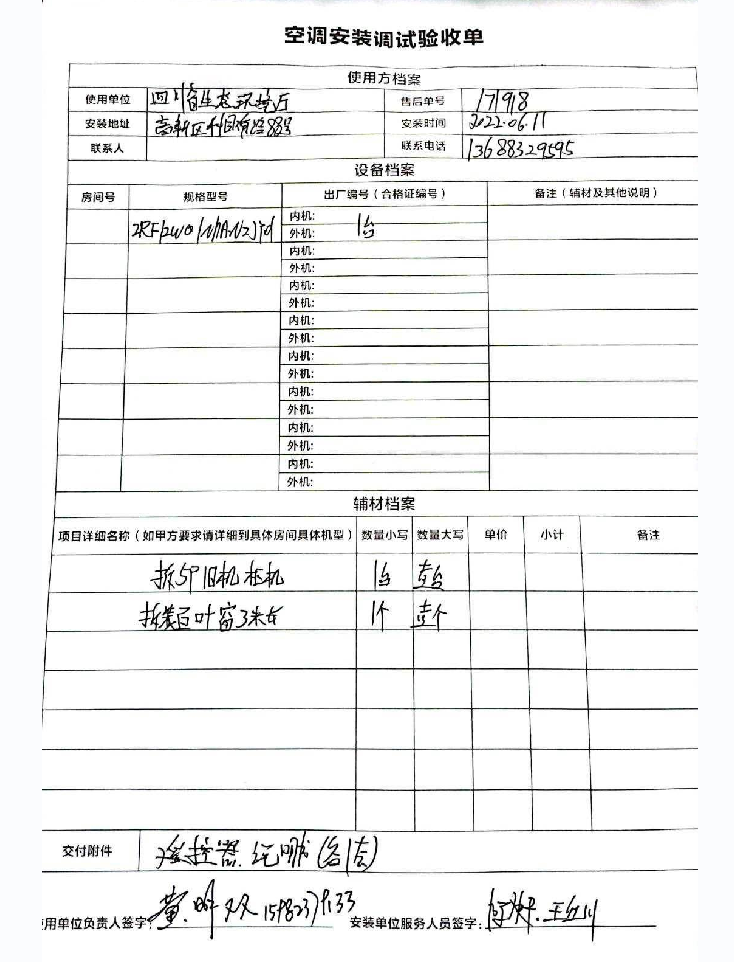 空调安装调试验收单
使用方档案
使用单位 四川省生态环境厅 售后单号 171918
安装地址 高新区科园南路88号 安装时间 2022.06.11
联系人 联系电话 13688329595
设备档案
房间号 规格型号 出厂编号（合格证编号） 备注（辅材及其他说明）
内机:
外机: 1台
内机:
外机:
内机:
外机:
内机:
外机:
内机:
外机:
内机:
外机:
内机:
外机:
内机:
外机:
辅材档案
项目详细名称（如甲方要求请详细到具体房间具体机型） 数量小写 数量大写 单价 小计 备注
拆5P旧机柜机 1台 壹台
拆装百叶窗3米长 1个 壹个
交付附件 遥控器.说明书(各1套)
用单位负责人签字: 黄 安装单位服务人员签字: 王红川